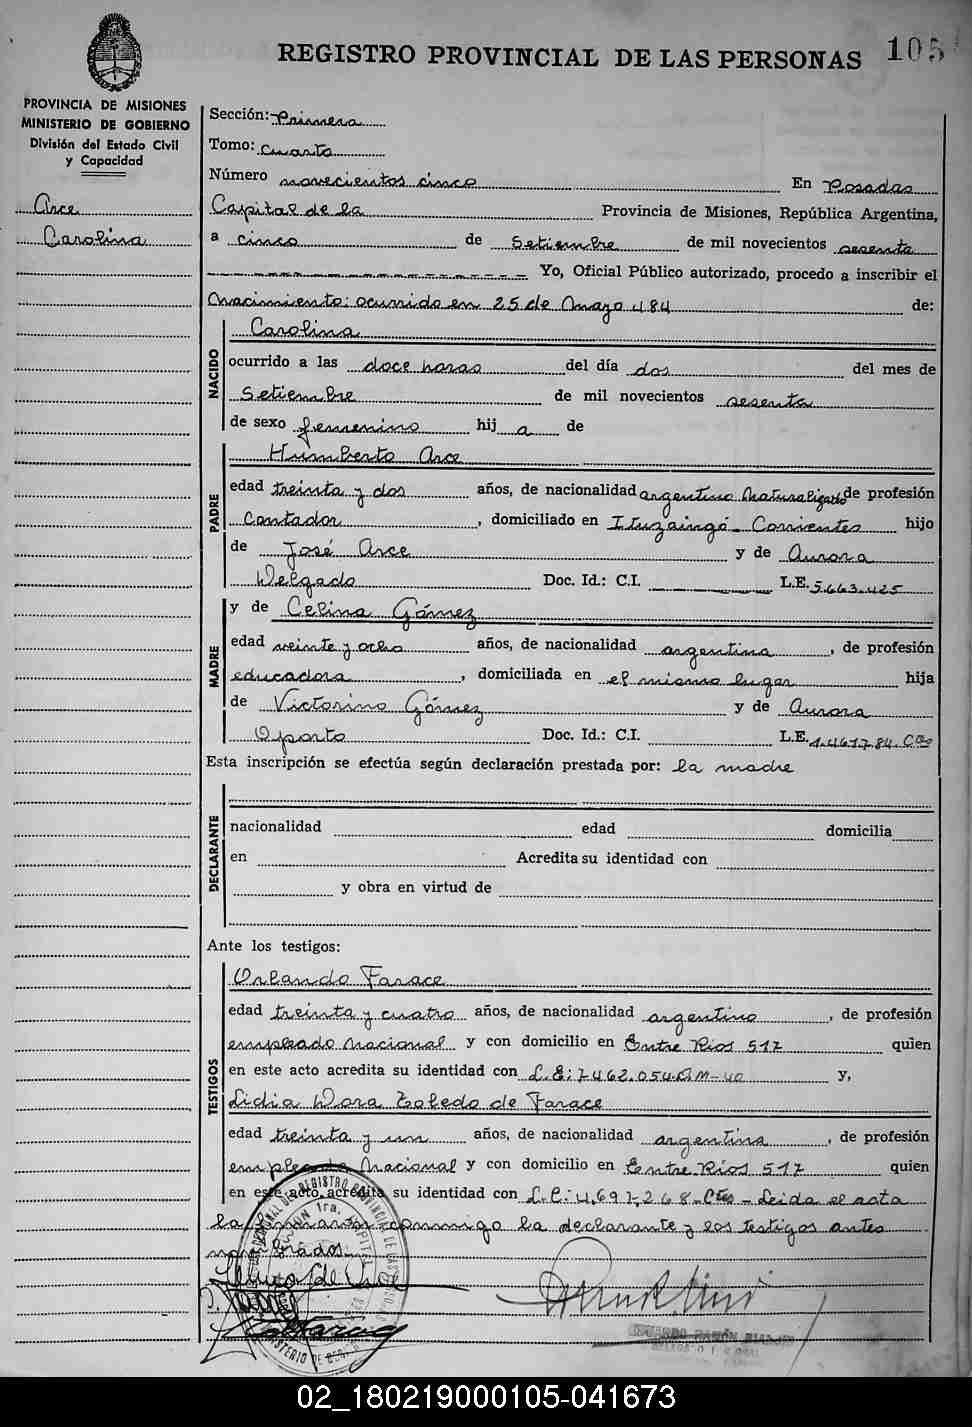 REGISTRO PROVINCIAL DE LAS PERSONAS 105
PROVINCIA DE MISIONES
MINISTERIO DE GOBIERNO
División del Estado Civil
y Capacidad
Arce
Carolina
Sección: Primera
Tomo: Cuarto
Número novecientos cinco En Posadas
Capital de la Provincia de Misiones, República Argentina,
a cinco de Setiembre de mil novecientos sesenta
Yo, Oficial Público autorizado, procedo a inscribir el
Nacimiento: ocurrido en 25 de Mayo 484 de:
NACIDO
Carolina
ocurrido a las doce horas del día dos del mes de
Setiembre de mil novecientos sesenta
de sexo femenino hij a de
PADRE
Humberto Arce
edad treinta y dos años, de nacionalidad argentino Naturalizado de profesión
Contador, domiciliado en Ituzaingó - Corrientes hijo
de José Arce y de Aurora
Delgado Doc. Id.: C.I. L.E. 5.663.425
MADRE
y de Celina Gómez
edad veinte y ocho años, de nacionalidad argentina, de profesión
educadora, domiciliada en el mismo lugar hija
de Victorino Gómez y de Aurora
Oporto Doc. Id.: C.I. L.E. 1.461.784.
Esta inscripción se efectúa según declaración prestada por: la madre
DECLARANTE
nacionalidad edad domicilia
en Acredita su identidad con
y obra en virtud de
Ante los testigos:
TESTIGOS
Orlando Farace
edad treinta y cuatro años, de nacionalidad argentino, de profesión
empleado Nacional y con domicilio en Entre Rios 517 quien
en este acto acredita su identidad con L.E: 7462.054.D.M-40 y,
Lidia Dora Toledo de Farace
edad treinta y un años, de nacionalidad argentina, de profesión
empleada Nacional y con domicilio en Entre Ríos 517 quien
en este acto acredita su identidad con L.C: 4.691.268 - Ctes - Leida el acta
la firmaron conmigo la declarante y los testigos antes
nombrados.
02_180219000105-041673